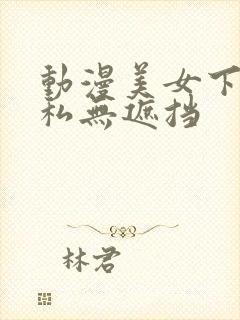 動漫美女下
私無遮挡
林君